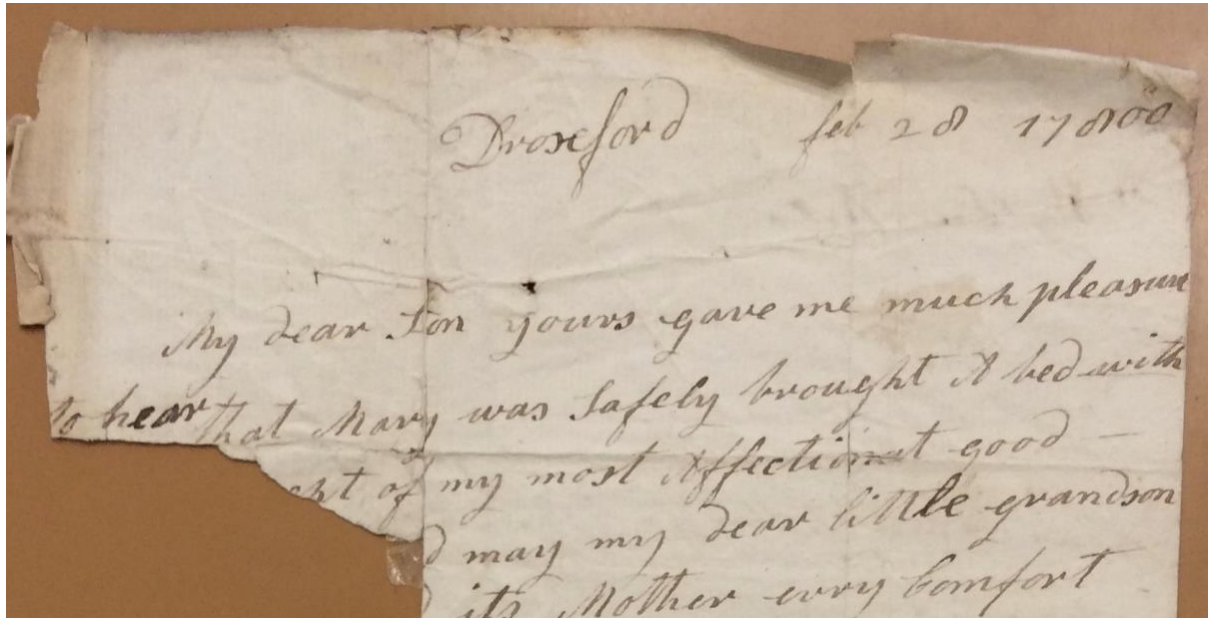 Droxford feb 28 1788
My dear Son yours gave me much pleasure
to hear that Mary was Safely brought A bed with
of my most Affectionat good —
may my dear little grandson
its Mother evry Comfort